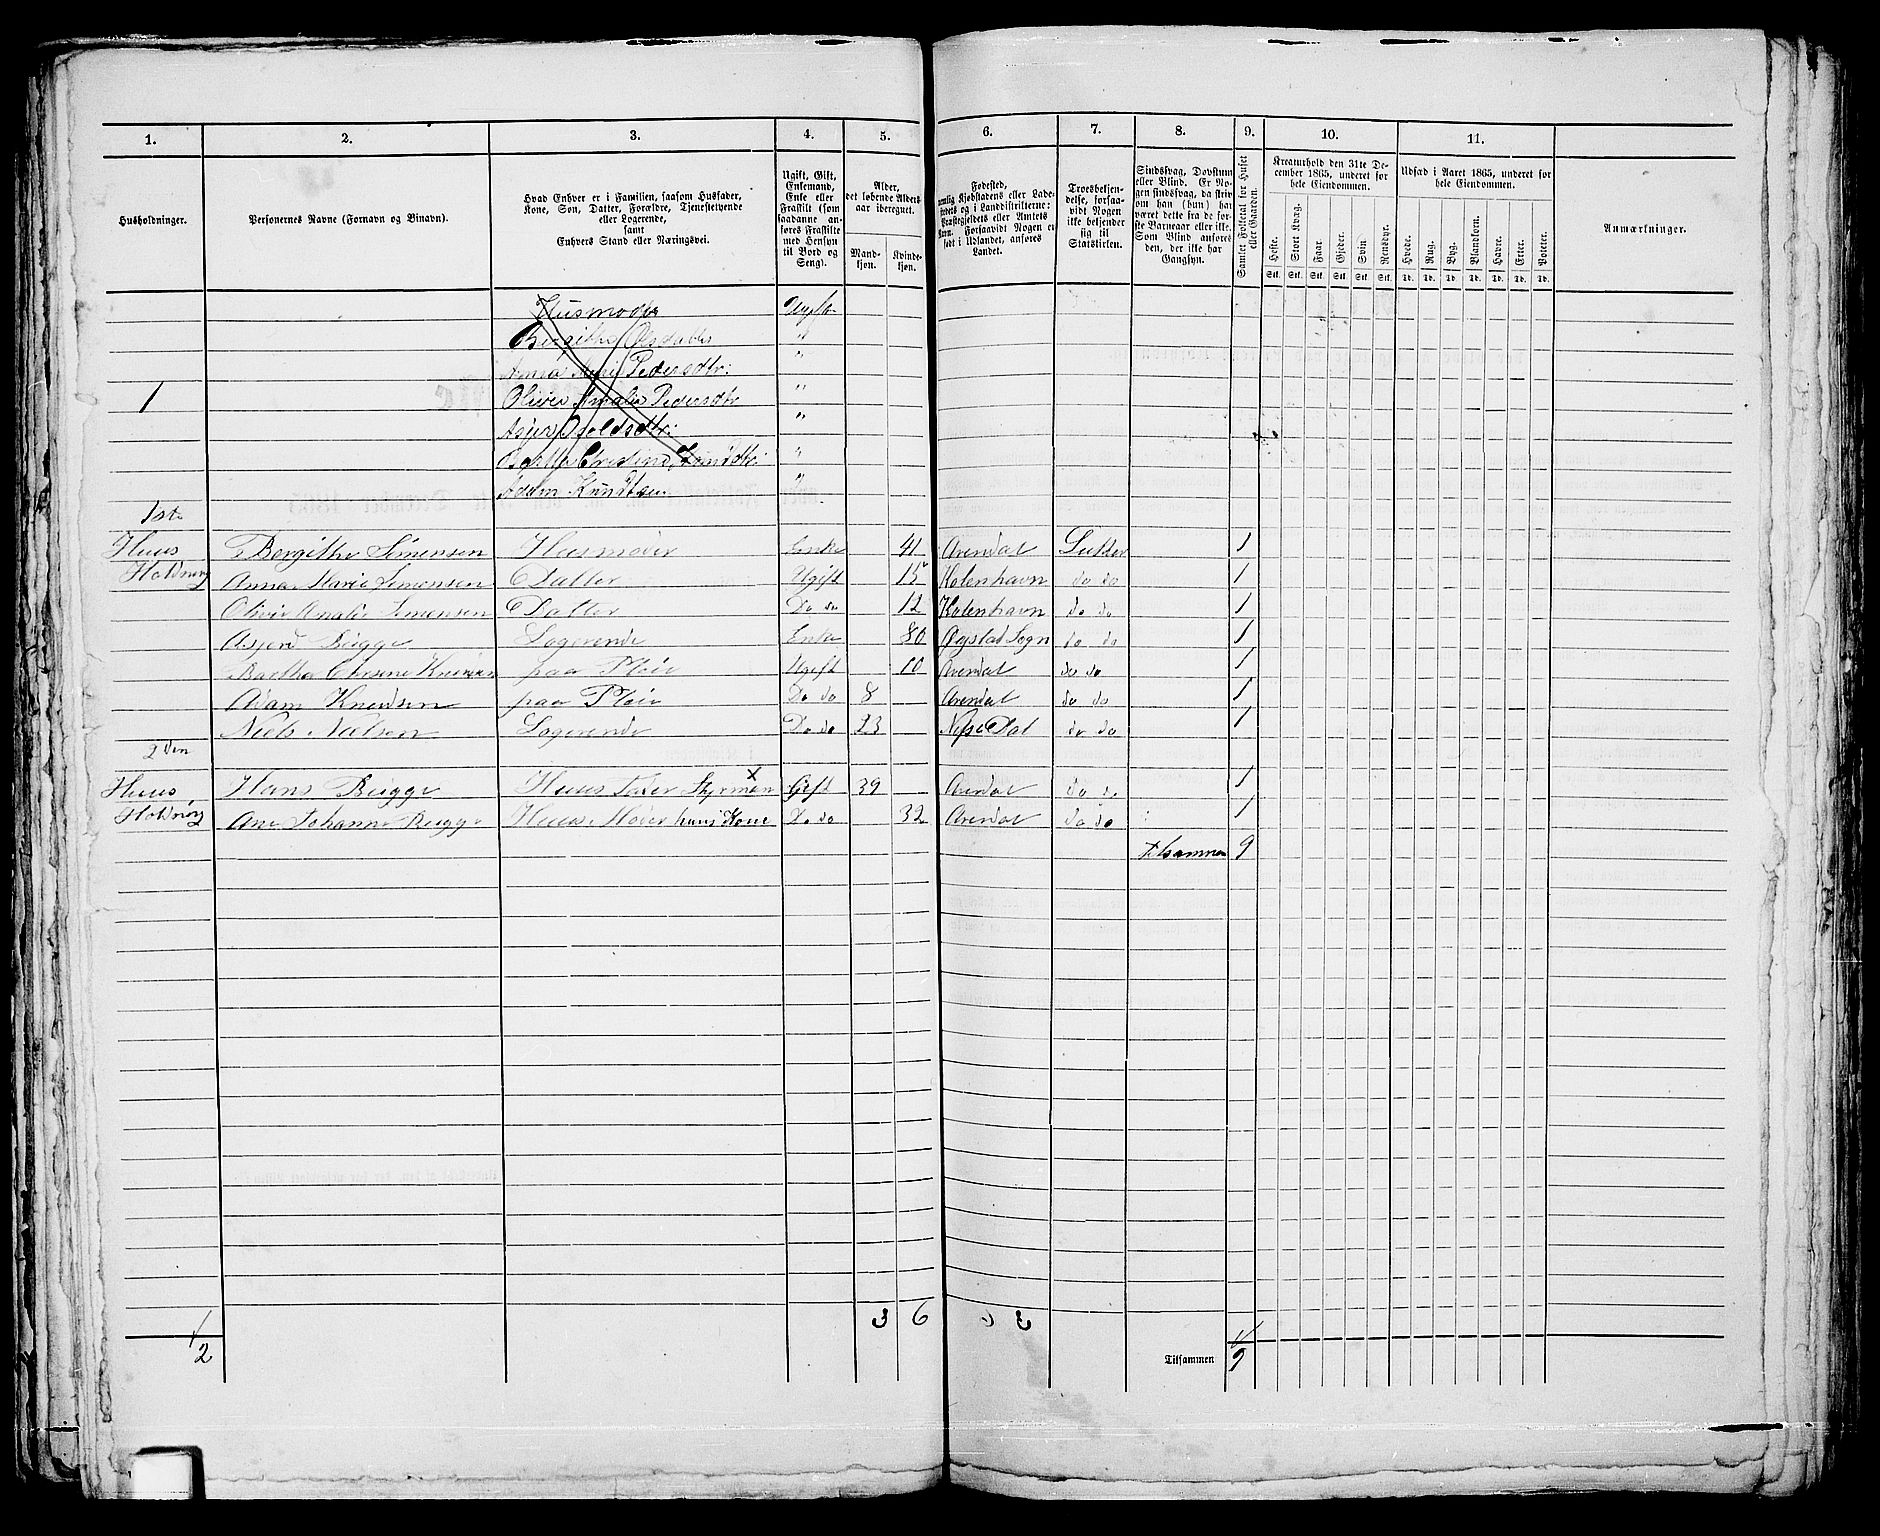 1. 2. 3. 4. 5. 6. 7. 8. 9. 10. 11.
Husholdninger.
Personernes Navne (Fornavn og Binavn).
Hvad Enhver er i Familien, saasom Husfader,
Kone, Søn, Datter, Forældre, Tjenestetyende
eller Logerende,
samt
Enhvers Stand eller Næringsvei.
Ugift, Gift,
Enkemand,
Enke eller
Fraskilt (som
saadanne an-
føres Fraskilte
med Hensyn
til Bord og
Seng).
Alder,
det løbende Alders-
aar iberegnet.
Mand-
kjøn.
Kvinde-
kjøn.
Fødested,
nemlig Kjøbstadens eller Lade-
stedets og i Landdistrikterne:
Præstegjeldets eller Amtets
Navn. Forsaavidt Nogen er
født i Udlandet, anføres
Landet.
Troesbekjen-
delse, forsaa-
vidt Nogen
ikke bekjender
sig til
Statskirken.
Sindssvag, Døvstum
eller Blind. Er No-
gen sindssvag, da skriv
om han (hun) har
været dette fra de før-
ste Barneaar eller ikke.
Som Blind anføres
den, der ikke har
Gangsyn.
Samlet Folketal for Huset
eller Gaarden.
Kreaturhold den 31te De-
cember 1865, underet for
hele Eiendommen.
Heste. Stort Kvæg. Faar. Gjeder. Svin. Rensdyr.
Stk. Stk. Stk. Stk. Stk. Stk.
Udsæd i Aaret 1865, underet for
hele Eiendommen.
Hvede. Rug. Byg. Blandkorn. Havre. Erter. Poteter.
Td. Td. Td. Td. Td. Td. Td.
Anmærkninger.
Husmoder Ugifte
Bergithe Olsdatter "
Anna Marie Pedersdtr: "
1 Olivia Amalia Pedersdtr "
Asjer Osoldsdtr: "
Bartha Christine "
Adam Kundtsen "
1ste
Huus Bergithe Simensen Huusmoder Enke 41 Arendal Luther 1
Holdning Anna Marie Simensen Datter Ugift 15 Kobenhavn do do 1
Olivie Amalie Simensen Datter Do do 12 Kobenhavn do do 1
Asjerd Bugge Logerende Enke 80 Øystad Sogn do do 1
Bartha Chrsine Knudsen paa Pleie Ugift 10 Arendal do do 1
Adam Knudsen paa Pleie Do do 8 Arendal do do 1
Niels Nielsen Logerende Do do 23 do do 1
2den
Huus Hans Bugge Huus Fader Styrman x Gift 39 Arendal do do 1
Holdning Ane Johanne Bugge Huus Moder hans Kone Do do 32 Arendal do do 1
tilsammen 9
3 6 3
2 Tilsammen 9